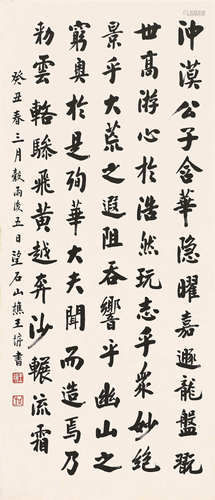 沖漠公子含華隱曜嘉遯龍盤翫
世高游心於浩然玩志乎衆妙絕
景乎大荒之遐阻吞響乎幽山之
窮奧於是殉華大夫聞而造焉乃
勑雲輅驂飛黃越奔沙輾流霜
癸丑春三月穀雨後五日望石山樵王書